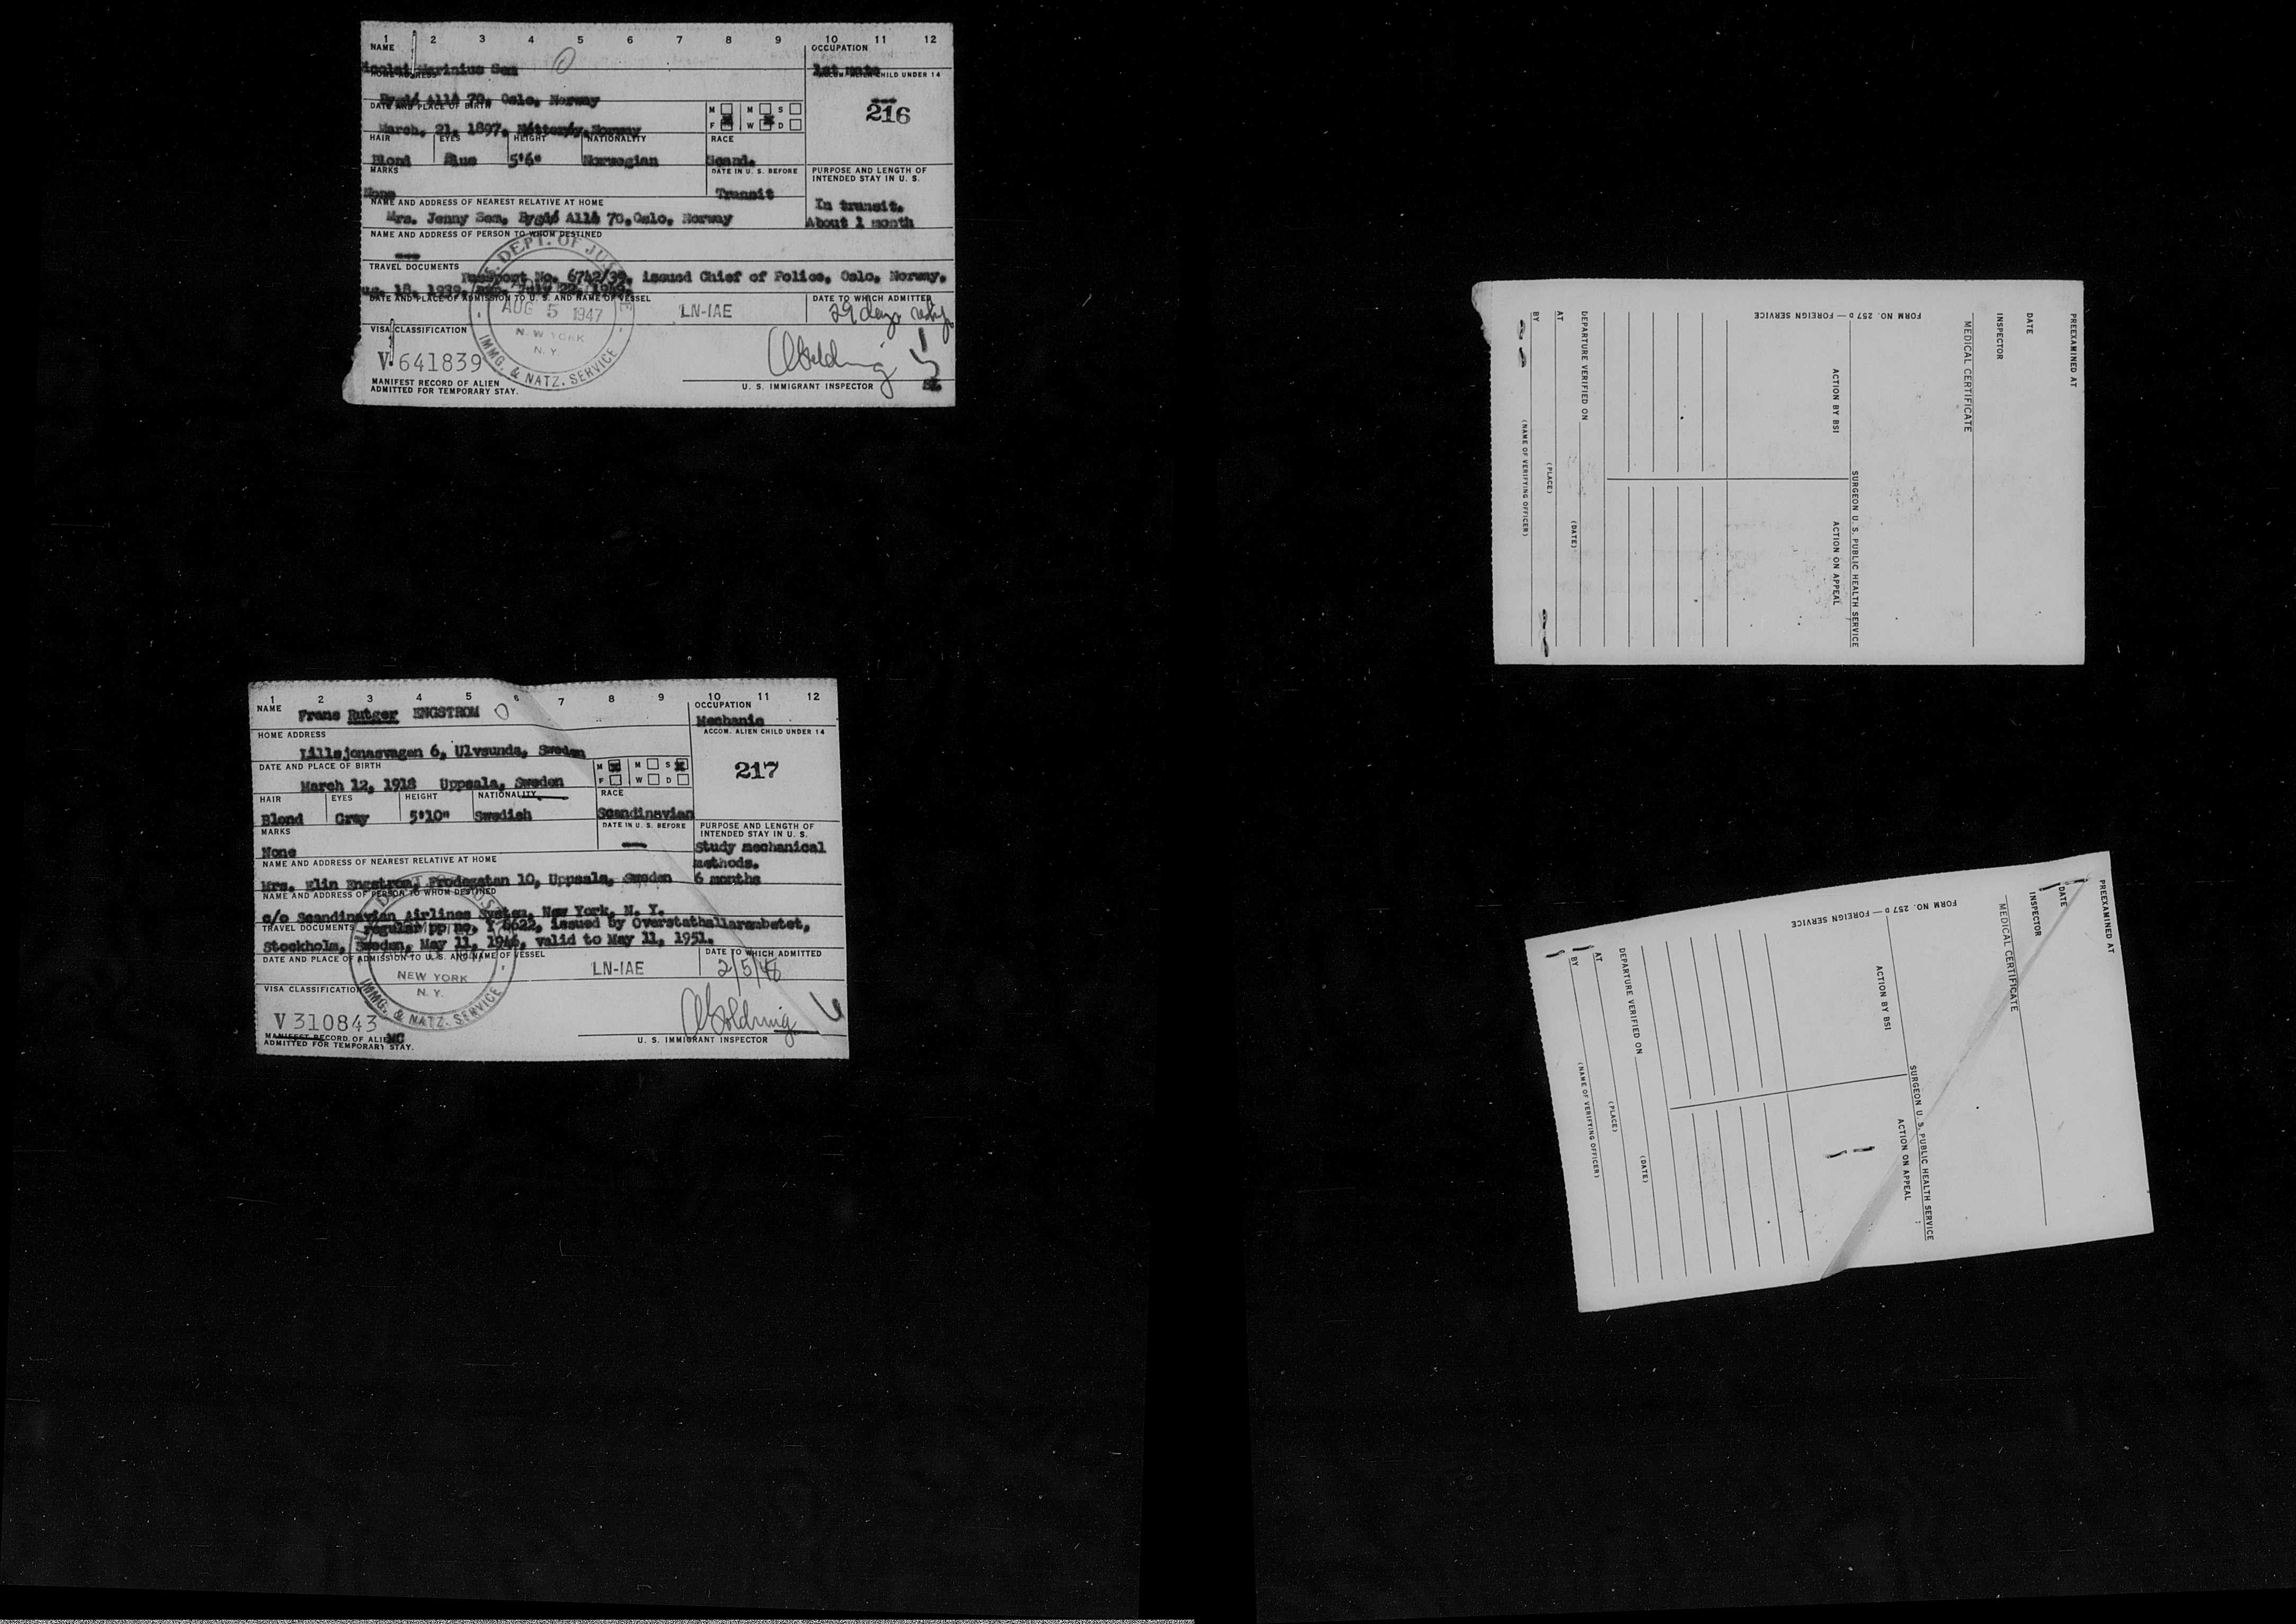 1 2 3 4 5 6 7 8 9 10 11 12
NAME OCCUPATION
icolai Marinius Sem 1st mate
HOME ADDRESS ACCOM. ALIEN CHILD UNDER 14
Bygdö Allé 70, Oslo, Norway ---
DATE AND PLACE OF BIRTH M M S 216
March, 21, 1897, Norway F W D
HAIR EYES HEIGHT NATIONALITY RACE
Blond Blue 5'6" Norwegian Scand.
MARKS DATE IN U. S. BEFORE PURPOSE AND LENGTH OF
INTENDED STAY IN U. S.
None Transit
NAME AND ADDRESS OF NEAREST RELATIVE AT HOME In transit.
Mrs. Jenny Sem, Bygdö Allé 70, Oslo, Norway About 1 month
NAME AND ADDRESS OF PERSON TO WHOM DESTINED
---
TRAVEL DOCUMENTS Passport No. 6742/39, issued Chief of Police, Oslo, Norway,
ug. 18, 1939, exp. July 22, 1949.
DATE AND PLACE OF ADMISSION TO U. S. AND NAME OF VESSEL DATE TO WHICH ADMITTED
LN-IAE 29 days
S. DEPT. OF JUS
AUG 5 1947
NEW YORK
N. Y.
IMMG. & NATZ. SERVICE
VISA CLASSIFICATION
V 641839 Goldring
MANIFEST RECORD OF ALIEN U. S. IMMIGRANT INSPECTOR
ADMITTED FOR TEMPORARY STAY.
1 2 3 4 5 6 7 8 9 10 11 12
NAME Frans Rutger ENGSTROM OCCUPATION
Mechanic
HOME ADDRESS ACCOM. ALIEN CHILD UNDER 14
Lillsjonasvagen 6, Ulvsunda, Sweden
DATE AND PLACE OF BIRTH M M S 217
March 12, 1918 Uppsala, Sweden F W D
HAIR EYES HEIGHT NATIONALITY RACE
Blond Gray 5'10" Swedish Scandinavian
MARKS DATE IN U. S. BEFORE PURPOSE AND LENGTH OF
INTENDED STAY IN U. S.
None --- Study mechanical
methods.
NAME AND ADDRESS OF NEAREST RELATIVE AT HOME
Mrs. Elin Engstrom, Frodegatan 10, Uppsala, Sweden 6 months
NAME AND ADDRESS OF PERSON TO WHOM DESTINED
c/o Scandinavian Airlines System, New York, N. Y.
TRAVEL DOCUMENTS regular pp no. Y 6622, issued by Overstathallarambetet,
Stockholm, Sweden, May 11, 1946, valid to May 11, 1951.
DATE AND PLACE OF ADMISSION TO U. S. AND NAME OF VESSEL DATE TO WHICH ADMITTED
LN-IAE 2/5/48
NEW YORK
N. Y.
IMMG. & NATZ. SERVICE
VISA CLASSIFICATION
V 310843 Goldring
MANIFEST RECORD OF ALIEN MC U. S. IMMIGRANT INSPECTOR
ADMITTED FOR TEMPORARY STAY.
PREEXAMINED AT
DATE
INSPECTOR
MEDICAL CERTIFICATE
SURGEON U. S. PUBLIC HEALTH SERVICE
ACTION BY BSI ACTION ON APPEAL
DEPARTURE VERIFIED ON
(DATE)
AT
(PLACE)
BY
(NAME OF VERIFYING OFFICER)
FORM NO. 257 D — FOREIGN SERVICE
PREEXAMINED AT
DATE
INSPECTOR
MEDICAL CERTIFICATE
SURGEON U. S. PUBLIC HEALTH SERVICE
ACTION BY BSI ACTION ON APPEAL
DEPARTURE VERIFIED ON
(DATE)
AT
(PLACE)
BY
(NAME OF VERIFYING OFFICER)
FORM NO. 257 D — FOREIGN SERVICE